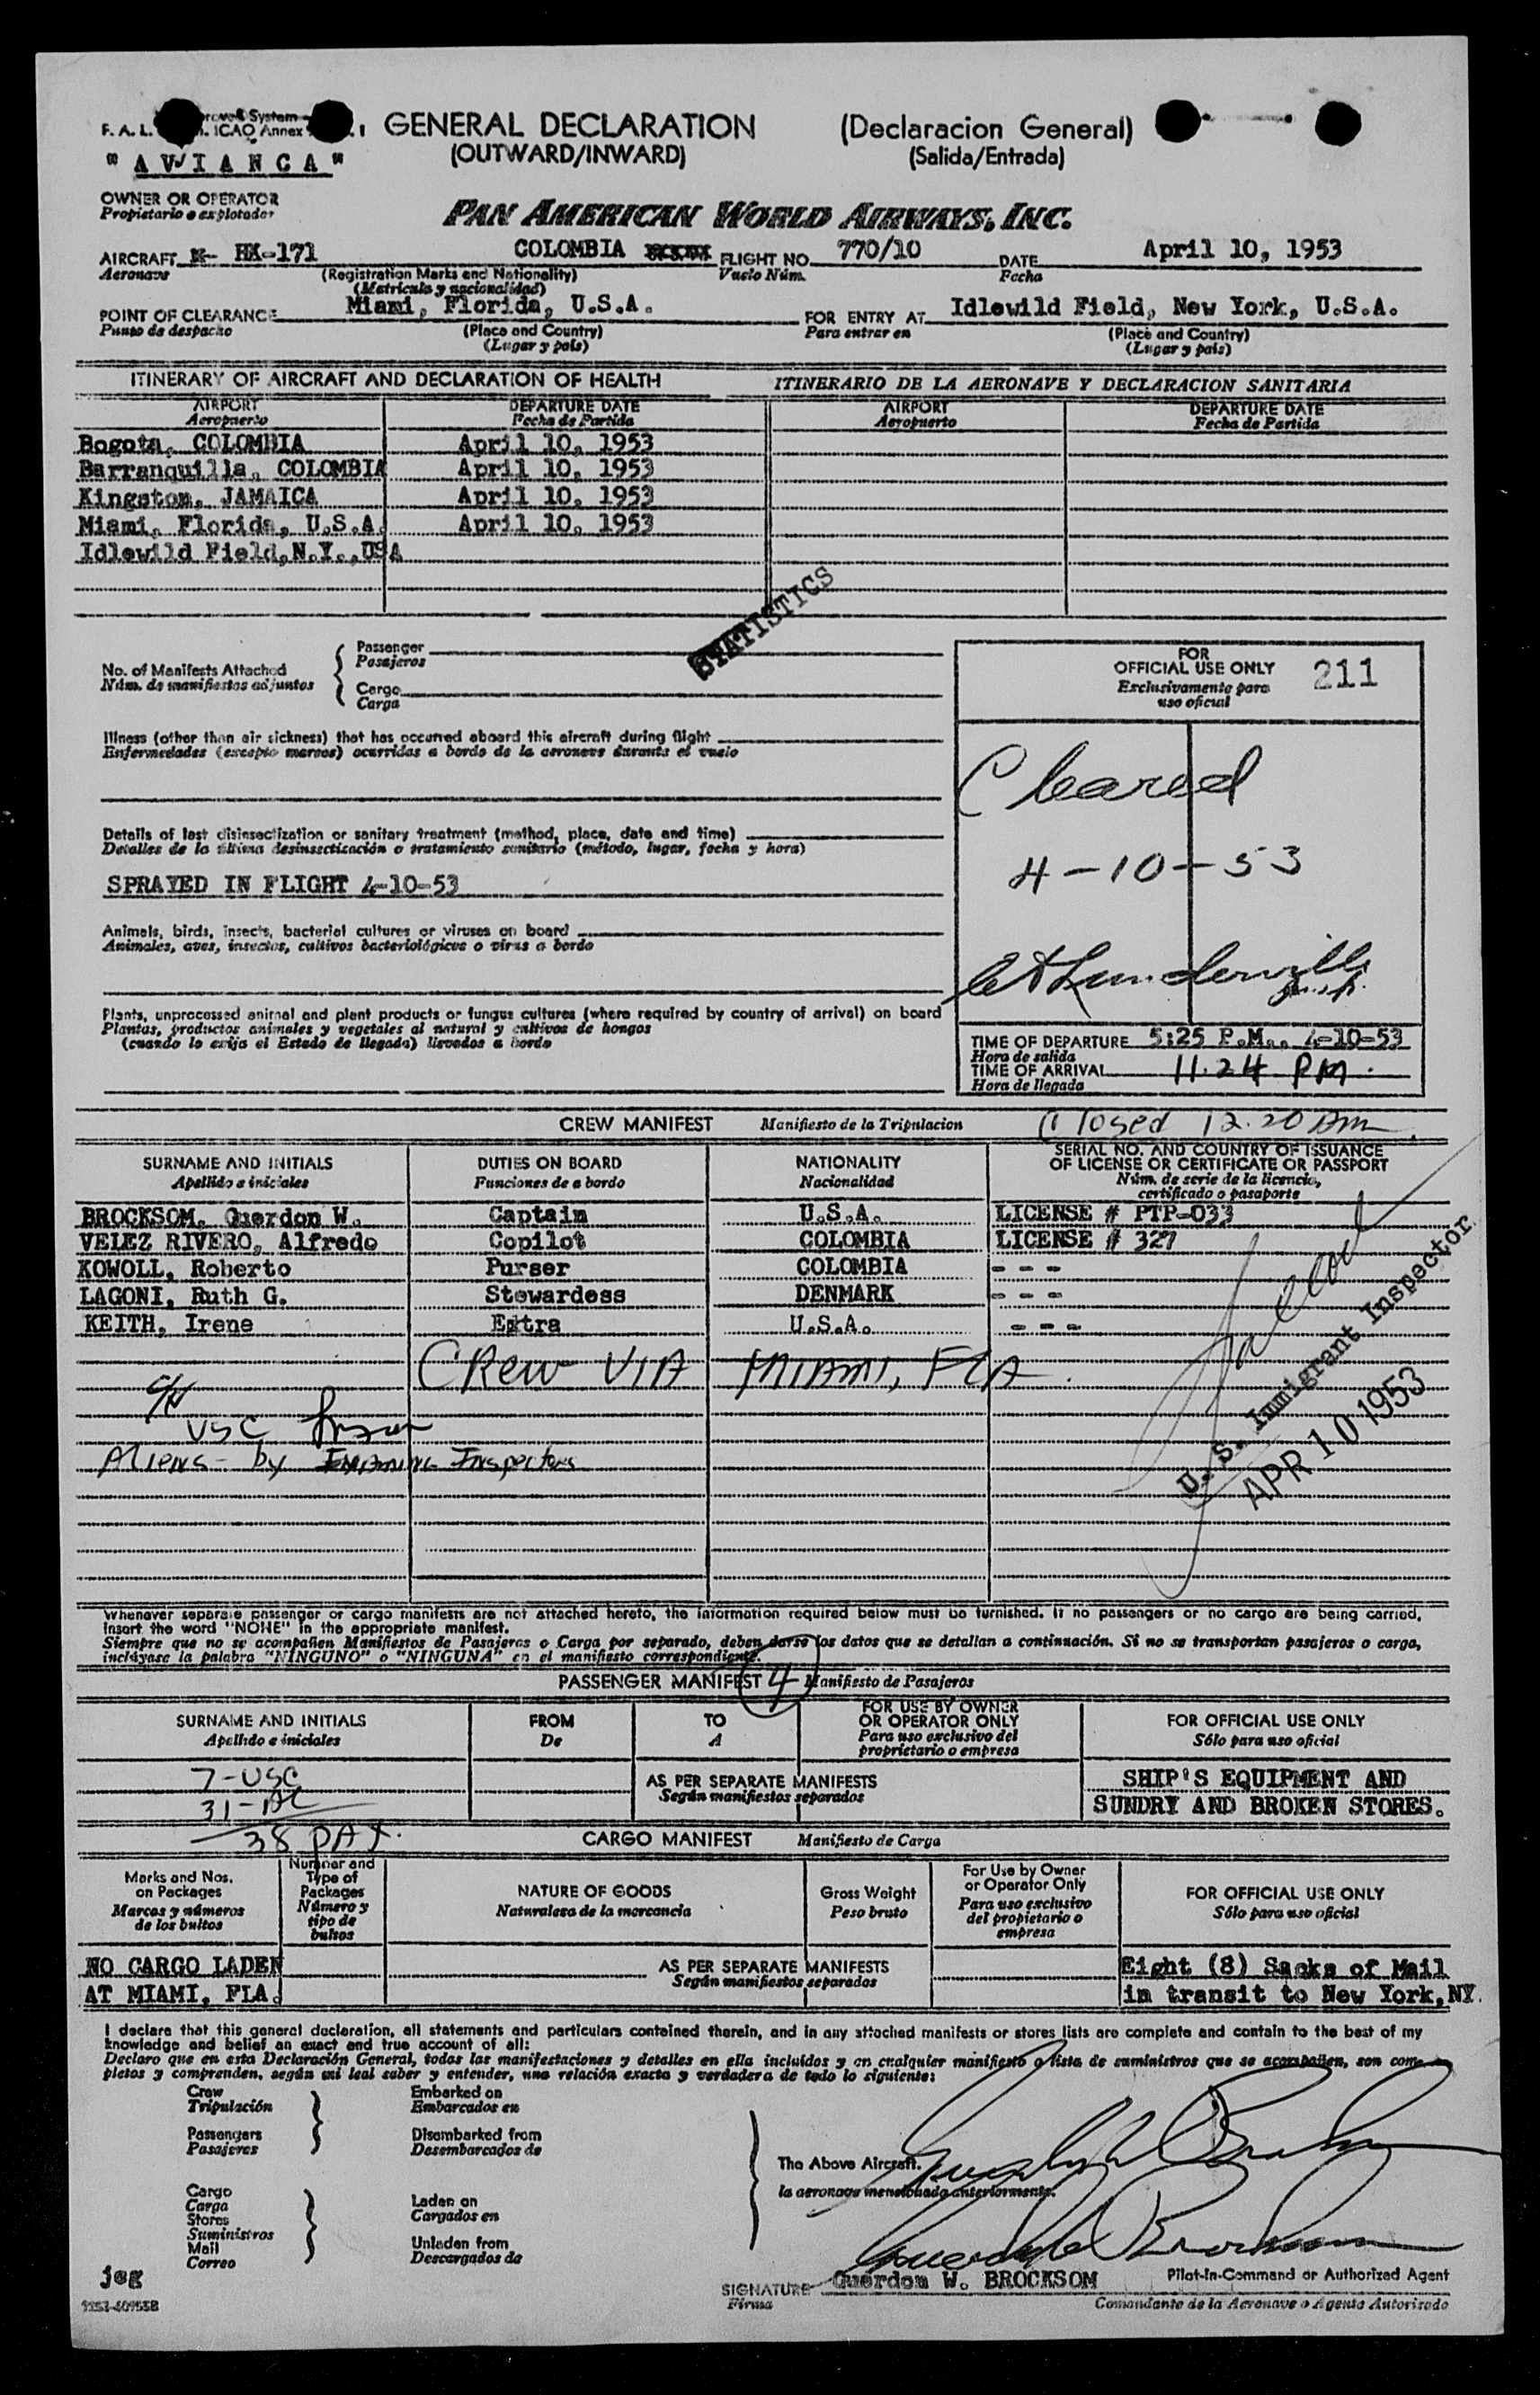 F. A. L.
ICAO Annex
GENERAL DECLARATION
(Declaracion General)
(OUTWARD/INWARD)
(Salida/Entrada)
"AVIANCA"
OWNER OR OPERATOR
Propietario o explotador
PAN AMERICAN WORLD AIRWAYS, INC.
AIRCRAFT HK-171 COLOMBIA FLIGHT NO. 770/10 DATE April 10, 1953
Aeronave (Registration Marks and Nationality) Vuelo Núm. Fecha
(Matricula y nacionalidad)
POINT OF CLEARANCE Miami, Florida, U.S.A. FOR ENTRY AT Idlewild Field, New York, U.S.A.
Punto de despacho (Place and Country) Para entrar en (Place and Country)
(Lugar y país) (Lugar y país)
ITINERARY OF AIRCRAFT AND DECLARATION OF HEALTH ITINERARIO DE LA AERONAVE Y DECLARACION SANITARIA
AIRPORT DEPARTURE DATE AIRPORT DEPARTURE DATE
Aeropuerto Fecha de Partida Aeropuerto Fecha de Partida
Bogota, COLOMBIA April 10, 1953
Barranquilla, COLOMBIA April 10, 1953
Kingston, JAMAICA April 10, 1953
Miami, Florida, U.S.A. April 10, 1953
Idlewild Field,N.Y.,USA
STATISTICS
No. of Manifests Attached
Núm. de manifiestos adjuntos
Passenger
Pasajeros
Cargo
Carga
FOR
OFFICIAL USE ONLY
Exclusivamente para
uso oficial
211
Illness (other than air sickness) that has occurred aboard this aircraft during flight
Enfermedades (excepto mareos) ocurridas a bordo de la aeronave durante el vuelo
Cleared
4-10-53
Details of last disinsectization or sanitary treatment (method, place, date and time)
Detalles de la última desinsectización o tratamiento sanitario (método, lugar, fecha y hora)
SPRAYED IN FLIGHT 4-10-53
Animals, birds, insects, bacterial cultures or viruses on board
Animales, aves, insectos, cultivos bacteriológicos o virus a bordo
Plants, unprocessed animal and plant products or fungus cultures (where required by country of arrival) on board
Plantas, productos animales y vegetales al natural y cultivos de hongos
(cuando lo exija el Estado de llegada) llevados a bordo
TIME OF DEPARTURE 5:25 P.M., 4-10-53
Hora de salida
TIME OF ARRIVAL 11.24 PM.
Hora de llegada
CREW MANIFEST Manifiesto de la Tripulacion Closed 12.20 AM.
SURNAME AND INITIALS DUTIES ON BOARD NATIONALITY SERIAL NO. AND COUNTRY OF ISSUANCE
OF LICENSE OR CERTIFICATE OR PASSPORT
Apellido e iniciales Funciones de a bordo Nacionalidad Núm. de serie de la licencia,
certificado o pasaporte
BROCKSOM, Guerdon W. Captain U.S.A. LICENSE # PTP-033
VELEZ RIVERO, Alfredo Copilot COLOMBIA LICENSE # 327
KOWOLL, Roberto Purser COLOMBIA - - -
LAGONI, Ruth G. Stewardess DENMARK - - -
KEITH, Irene Extra U.S.A. - - -
CREW VIA MIAMI, FLA.
USC
Aliens - by Examining Inspectors
U. S. Immigrant Inspector
APR 10 1953
Whenever separate passenger or cargo manifests are not attached hereto, the information required below must be furnished. If no passengers or no cargo are being carried,
insert the word "NONE" in the appropriate manifest.
Siempre que no se acompañen Manifiestos de Pasajeros o Carga por separado, deben darse los datos que se detallan a continuación. Si no se transportan pasajeros o carga,
inclúyase la palabra "NINGUNO" o "NINGUNA" en el manifiesto correspondiente.
PASSENGER MANIFEST 4 Manifiesto de Pasajeros
SURNAME AND INITIALS FROM TO FOR USE BY OWNER
OR OPERATOR ONLY FOR OFFICIAL USE ONLY
Apellido e iniciales De A Para uso exclusivo del
propietario o empresa Sólo para uso oficial
7-USC AS PER SEPARATE MANIFESTS SHIP'S EQUIPMENT AND
31-AL Según manifiestos separados SUNDRY AND BROKEN STORES.
38 PAX.
CARGO MANIFEST Manifiesto de Carga
Marks and Nos.
on Packages
Marcas y números
de los bultos
Number and
Type of
Packages
Número y
tipo de
bultos
NATURE OF GOODS
Naturaleza de la mercancia
Gross Weight
Peso bruto
For Use by Owner
or Operator Only
Para uso exclusivo
del propietario o
empresa
FOR OFFICIAL USE ONLY
Sólo para uso oficial
NO CARGO LADEN AS PER SEPARATE MANIFESTS Eight (8) Sacks of Mail
AT MIAMI, FLA. Según manifiestos separados in transit to New York,NY.
I declare that this general declaration, all statements and particulars contained therein, and in any attached manifests or stores lists are complete and contain to the best of my
knowledge and belief an exact and true account of all:
Declaro que en esta Declaración General, todas las manifestaciones y detalles en ella incluídos y en cualquier manifiesto o lista de suministros que se acompañen, son com-
pletos y comprenden, según mi leal saber y entender, una relación exacta y verdadera de todo lo siguiente:
Crew
Tripulación
Passengers
Pasajeros
Embarked on
Embarcados en
Disembarked from
Desembarcados de
The Above Aircraft.
la aeronave mencionada anteriormente.
Cargo
Carga
Stores
Suministros
Mail
Correo
Laden on
Cargados en
Unladen from
Descargados de
jeg
SIGNATURE Guerdon W. BROCKSOM Pilot-In-Command or Authorized Agent
Firma Comandante de la Aeronave o Agente Autorizado